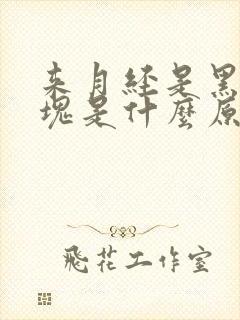 来月经是黑
塊是什麼原
飛花工作室